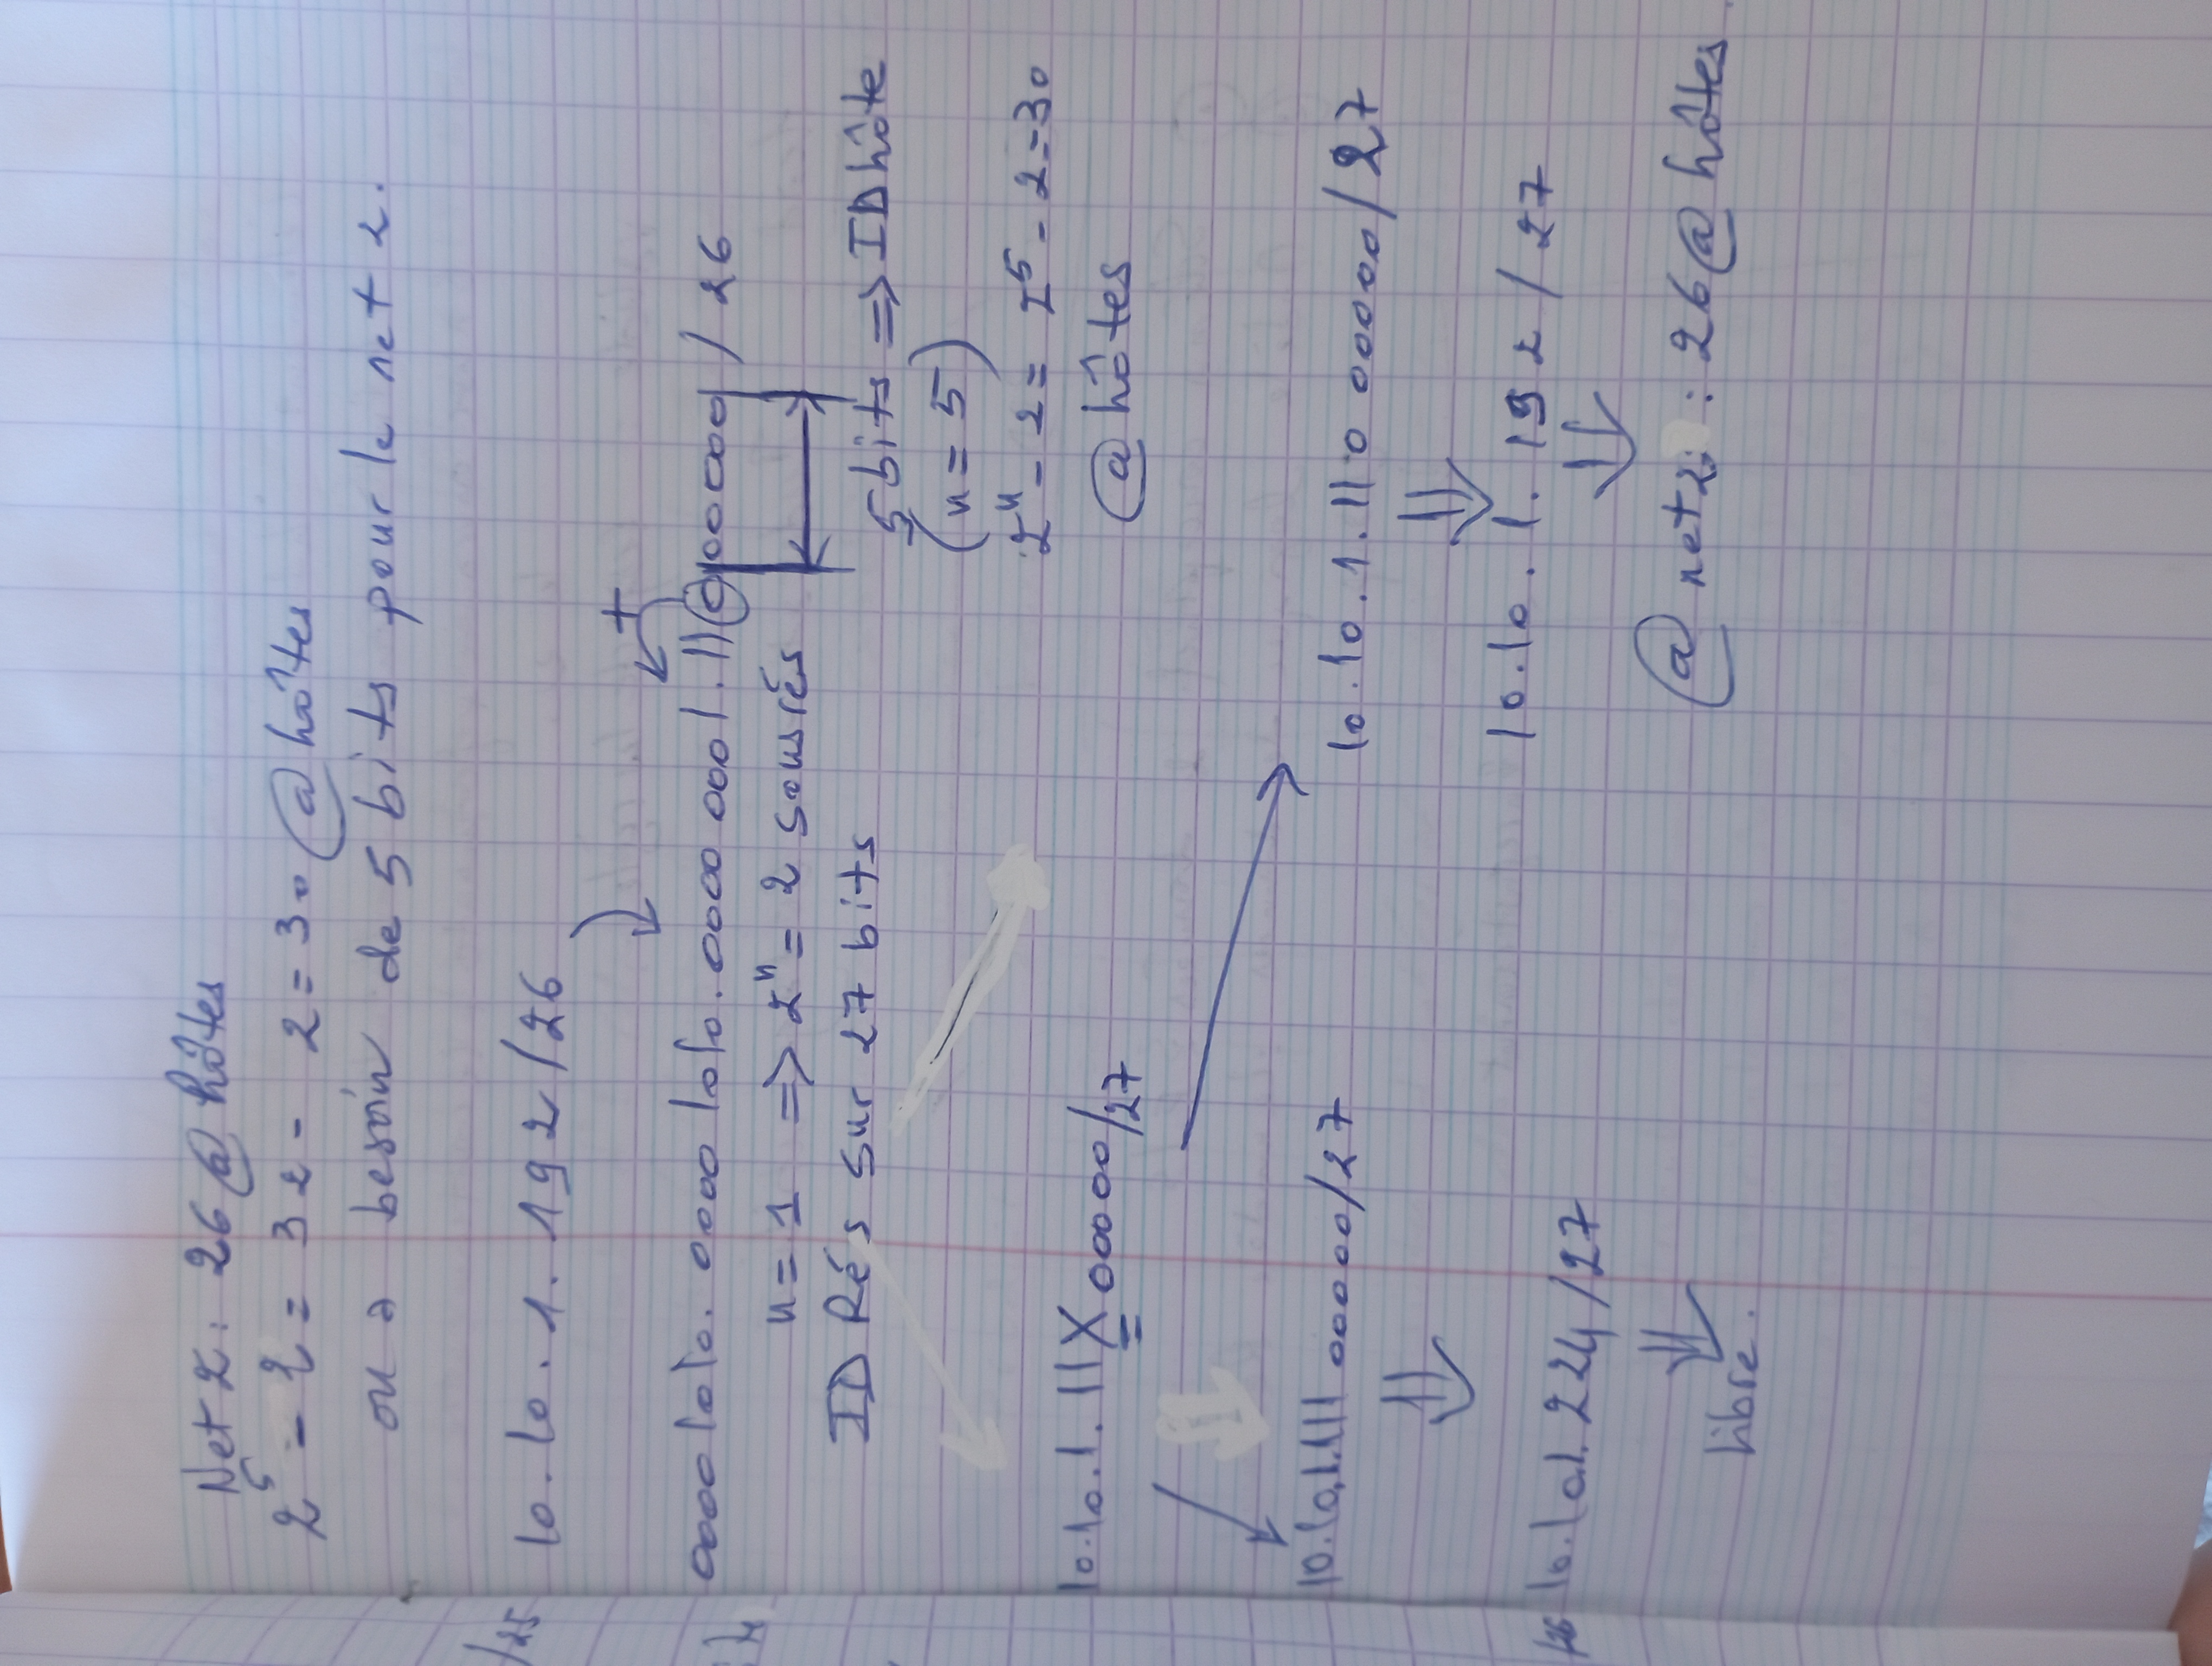 Net 2 : 26 @ hôtes
2⁵ - 2 = 32 - 2 = 30 @ hôtes
on a besoin de 5 bits pour le net 2.
/25
10.10.1.192/26
+
00001010.00001010.00000001.11000000/26
n = 1 => 2ⁿ = 2 sous rés
ID Rés sur 27 bits
5 bits => ID hôte
(n = 5)
2ⁿ - 2 = 2⁵ - 2 = 30
@ hôtes
10.10.1.11X00000/27
10.10.1.11100000/27
10.10.1.110 00000/27
10.10.1.192/27
/26
10.10.1.224/27
@ net 2 : 26 @ hôtes
libre.